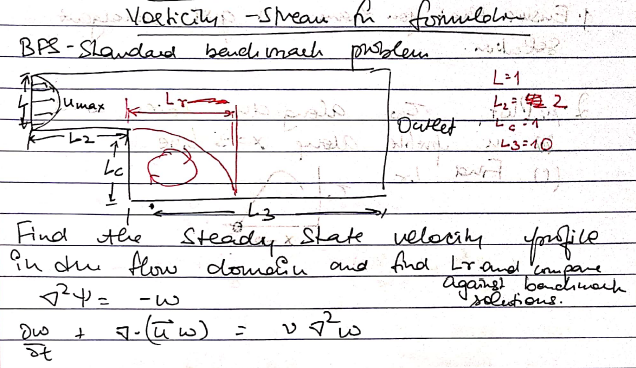 Vorticity - Stream fn formulation
BFS - Standard benchmark problem
L
Umax
Lr
L=1
L2= 2
Lc=1
L3=10
Outlet
L2
Lc
L3
Find the Steady State velocity profile
in the flow domain and find Lr and compare
against benchmark
solutions.
∇²Ψ = -ω
∂ω/∂t + ∇·(u⃗ω) = ν∇²ω